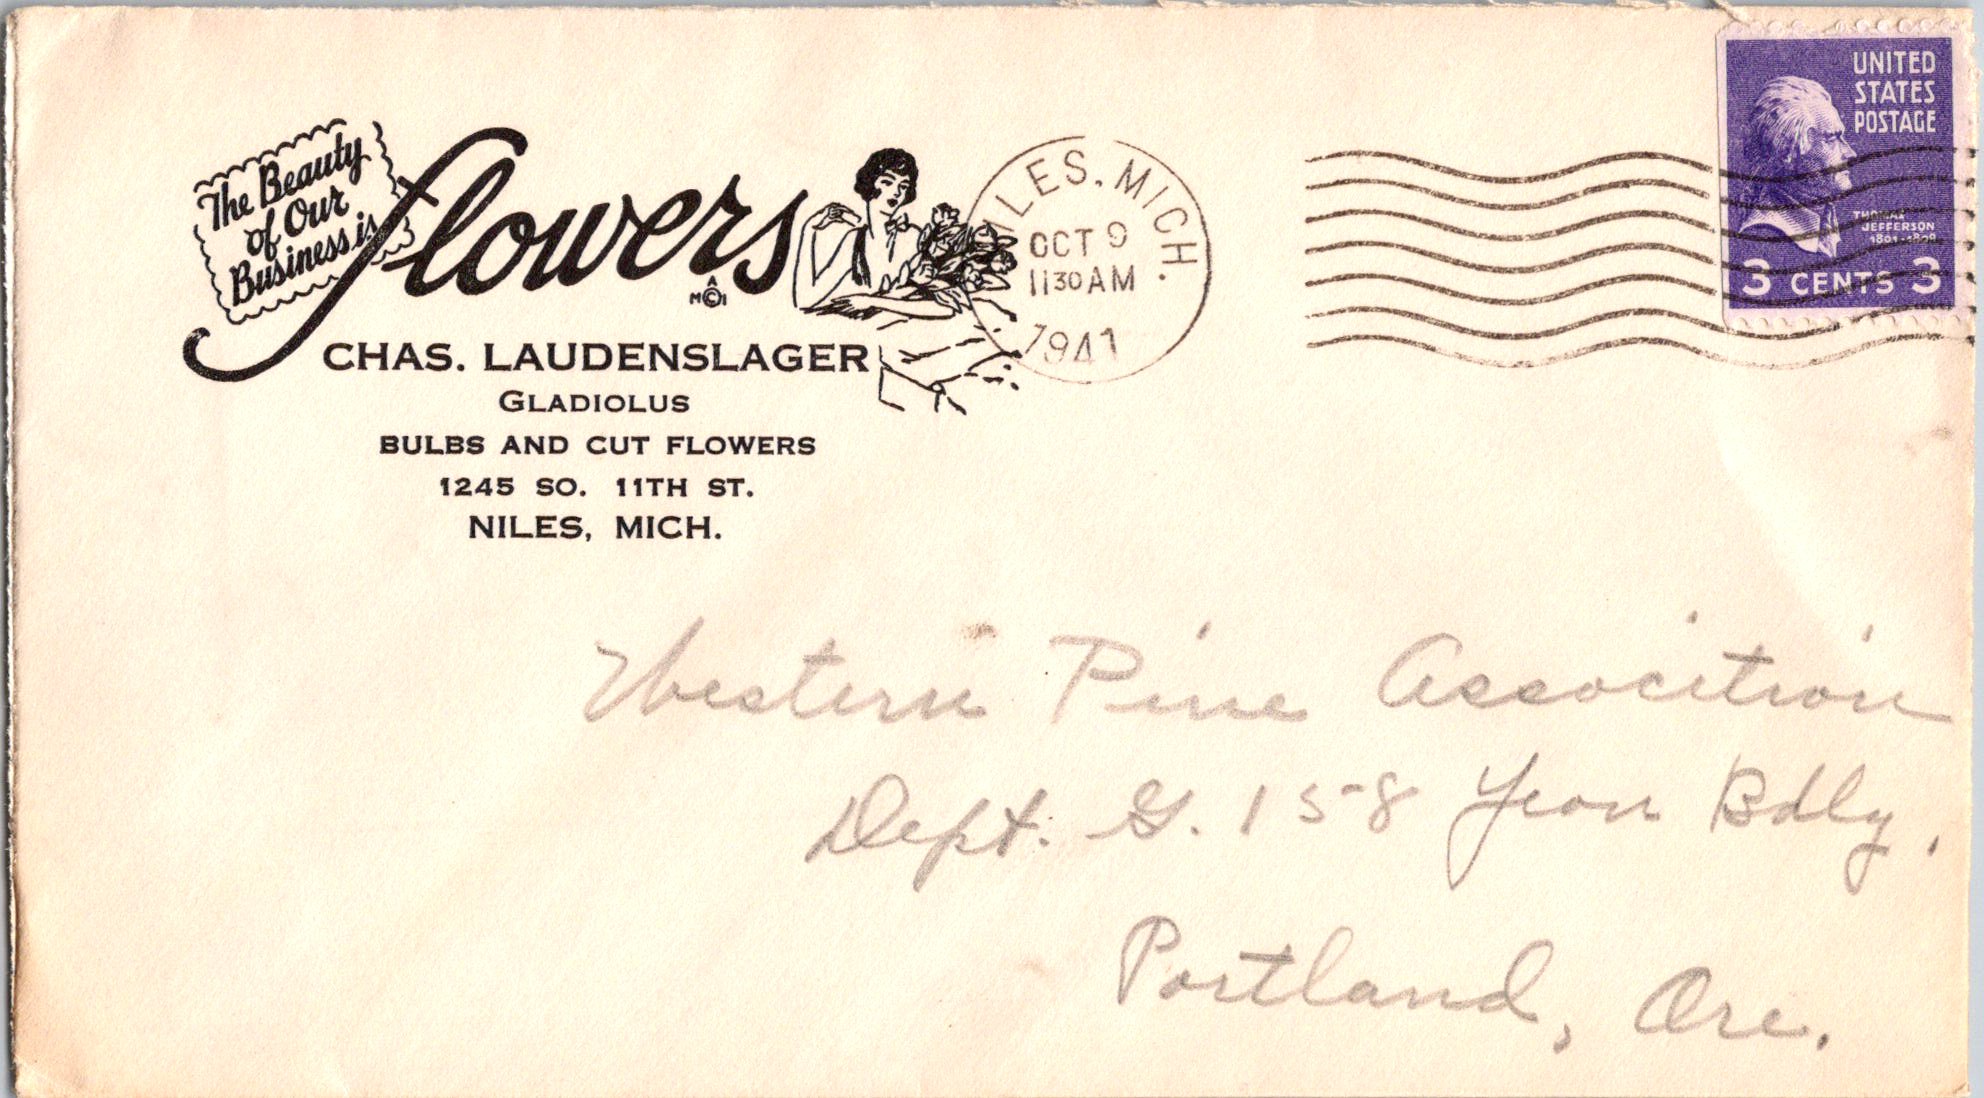 The Beauty
of Our
Business is
flowers
A
M©I
CHAS. LAUDENSLAGER
GLADIOLUS
BULBS AND CUT FLOWERS
1245 SO. 11TH ST.
NILES, MICH.
NILES, MICH.
OCT 9
11 30 AM
1941
UNITED
STATES
POSTAGE
THOMAS
JEFFERSON
1801-1809
3 CENTS 3
Western Pine Assocition
Dept. G. 158 Yeon Bdlg,
Portland, Ore.